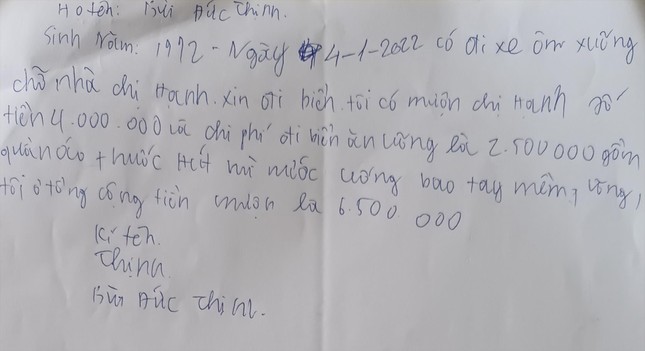 Họ tên: Bùi Đức Thịnh.
Sinh Năm: 1972 - Ngày 4-1-2022 có đi xe ôm xuống
chỗ nhà chị Hạnh. xin đi biển. tôi có mượn chị Hạnh số
tiền 4.000.000 là chi phí đi biển ăn uống là 2.500 000 gồm
quần áo thuốc Hút mì nước uống bao tay mềm, võng,
tôi ở tổng cộng tiền mượn là 6.500 000
Kí tên.
Thịnh
Bùi Đức Thịnh.